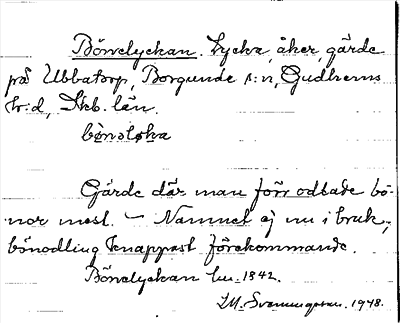 Bönelyckan. Lycka, åker, gärde
på Ubbatorp, Borgunda s:n, Gudhems
h:d, Skb. län.
bønsløka
Gärde där man förr odlade bö-
nor mest. — Namnet ej nu i bruk,
bönodling knappast förekommande.
Bönelyckan hm. 1842.
Svenungsson. 1948.